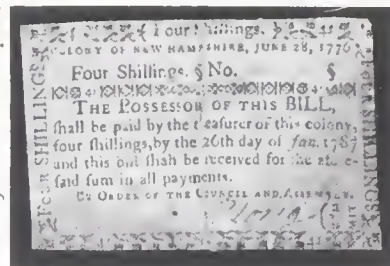 Four Shillings.
COLONY OF NEW HAMPSHIRE, JUNE 28, 1776
Four Shillings. § No. §
THE POSSESSOR OF THIS BILL,
ſhall be paid by the treaſurer of this colony,
four ſhillings, by the 26th day of Jan. 1787
and this bill ſhall be received for the afore-
ſaid ſum in all payments.
BY ORDER OF THE COUNCIL AND ASSEMBLY.
FOUR SHILLINGS
FOUR SHILLINGS